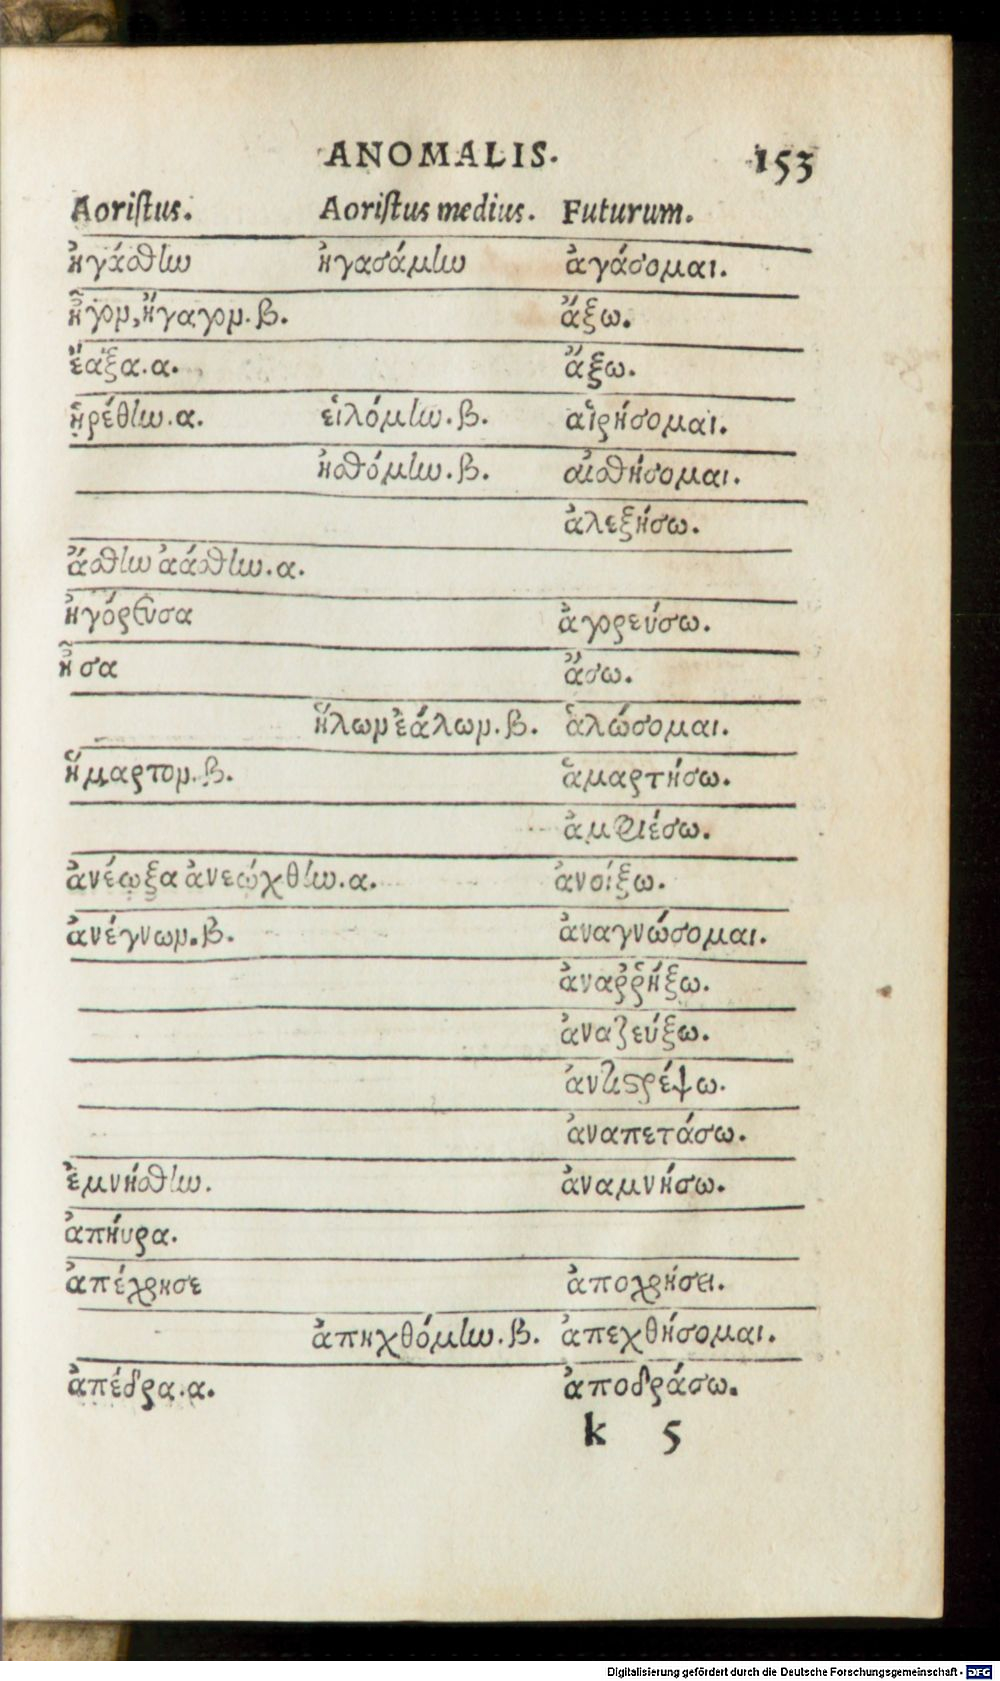 ANOMALIS. 153
Aoristus. Aoristus medius. Futurum.
ἠγάσθην ἠγασάμην ἀγάσομαι.
ἦγον, ἤγαγον. β. ἄξω.
ἔαξα. α. ἄξω.
ᾑρέθην. α. εἱλόμην. β. αἱρήσομαι.
ἠσθόμην. β. αἰσθήσομαι.
ἀλεξήσω.
ἄσθην ἀάσθην. α.
ἠγόρευσα ἀγορεύσω.
ἦσα ἄσω.
ἥλων ἑάλων. β. ἁλώσομαι.
ἥμαρτον. β. ἁμαρτήσω.
ἀμφιέσω.
ἀνέῳξα ἀνεῴχθην. α. ἀνοίξω.
ἀνέγνων. β. ἀναγνώσομαι.
ἀναῤῥήξω.
ἀναζεύξω.
ἀντιστρέψω.
ἀναπετάσω.
ἐμνήσθην. ἀναμνήσω.
ἀπήυρα.
ἀπέχρησε ἀποχρήσει.
ἀπηχθόμην. β. ἀπεχθήσομαι.
ἀπέδρα. α. ἀποδράσω.
k 5
Digitalisierung gefördert durch die Deutsche Forschungsgemeinschaft - DFG